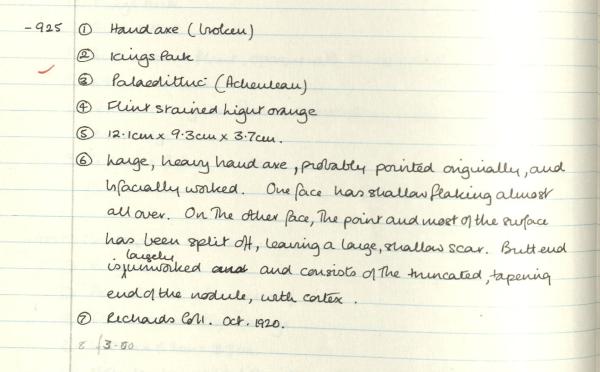 -925 ① Handaxe (broken)
② Kings Park
③ Palaeolithic (Acheulean)
④ Flint stained light orange
⑤ 12.1cm x 9.3cm x 3.7cm.
⑥ Large, heavy hand axe, probably pointed originally, and
bifacially worked. One face has shallow flaking almost
all over. On the other face, the point and most of the surface
has been split off, leaving a large, shallow scar. Butt end
is largely unworked and and consists of the truncated, tapering
end of the nodule, with cortex.
⑦ Richards Coll. Oct. 1920.
8 3-80